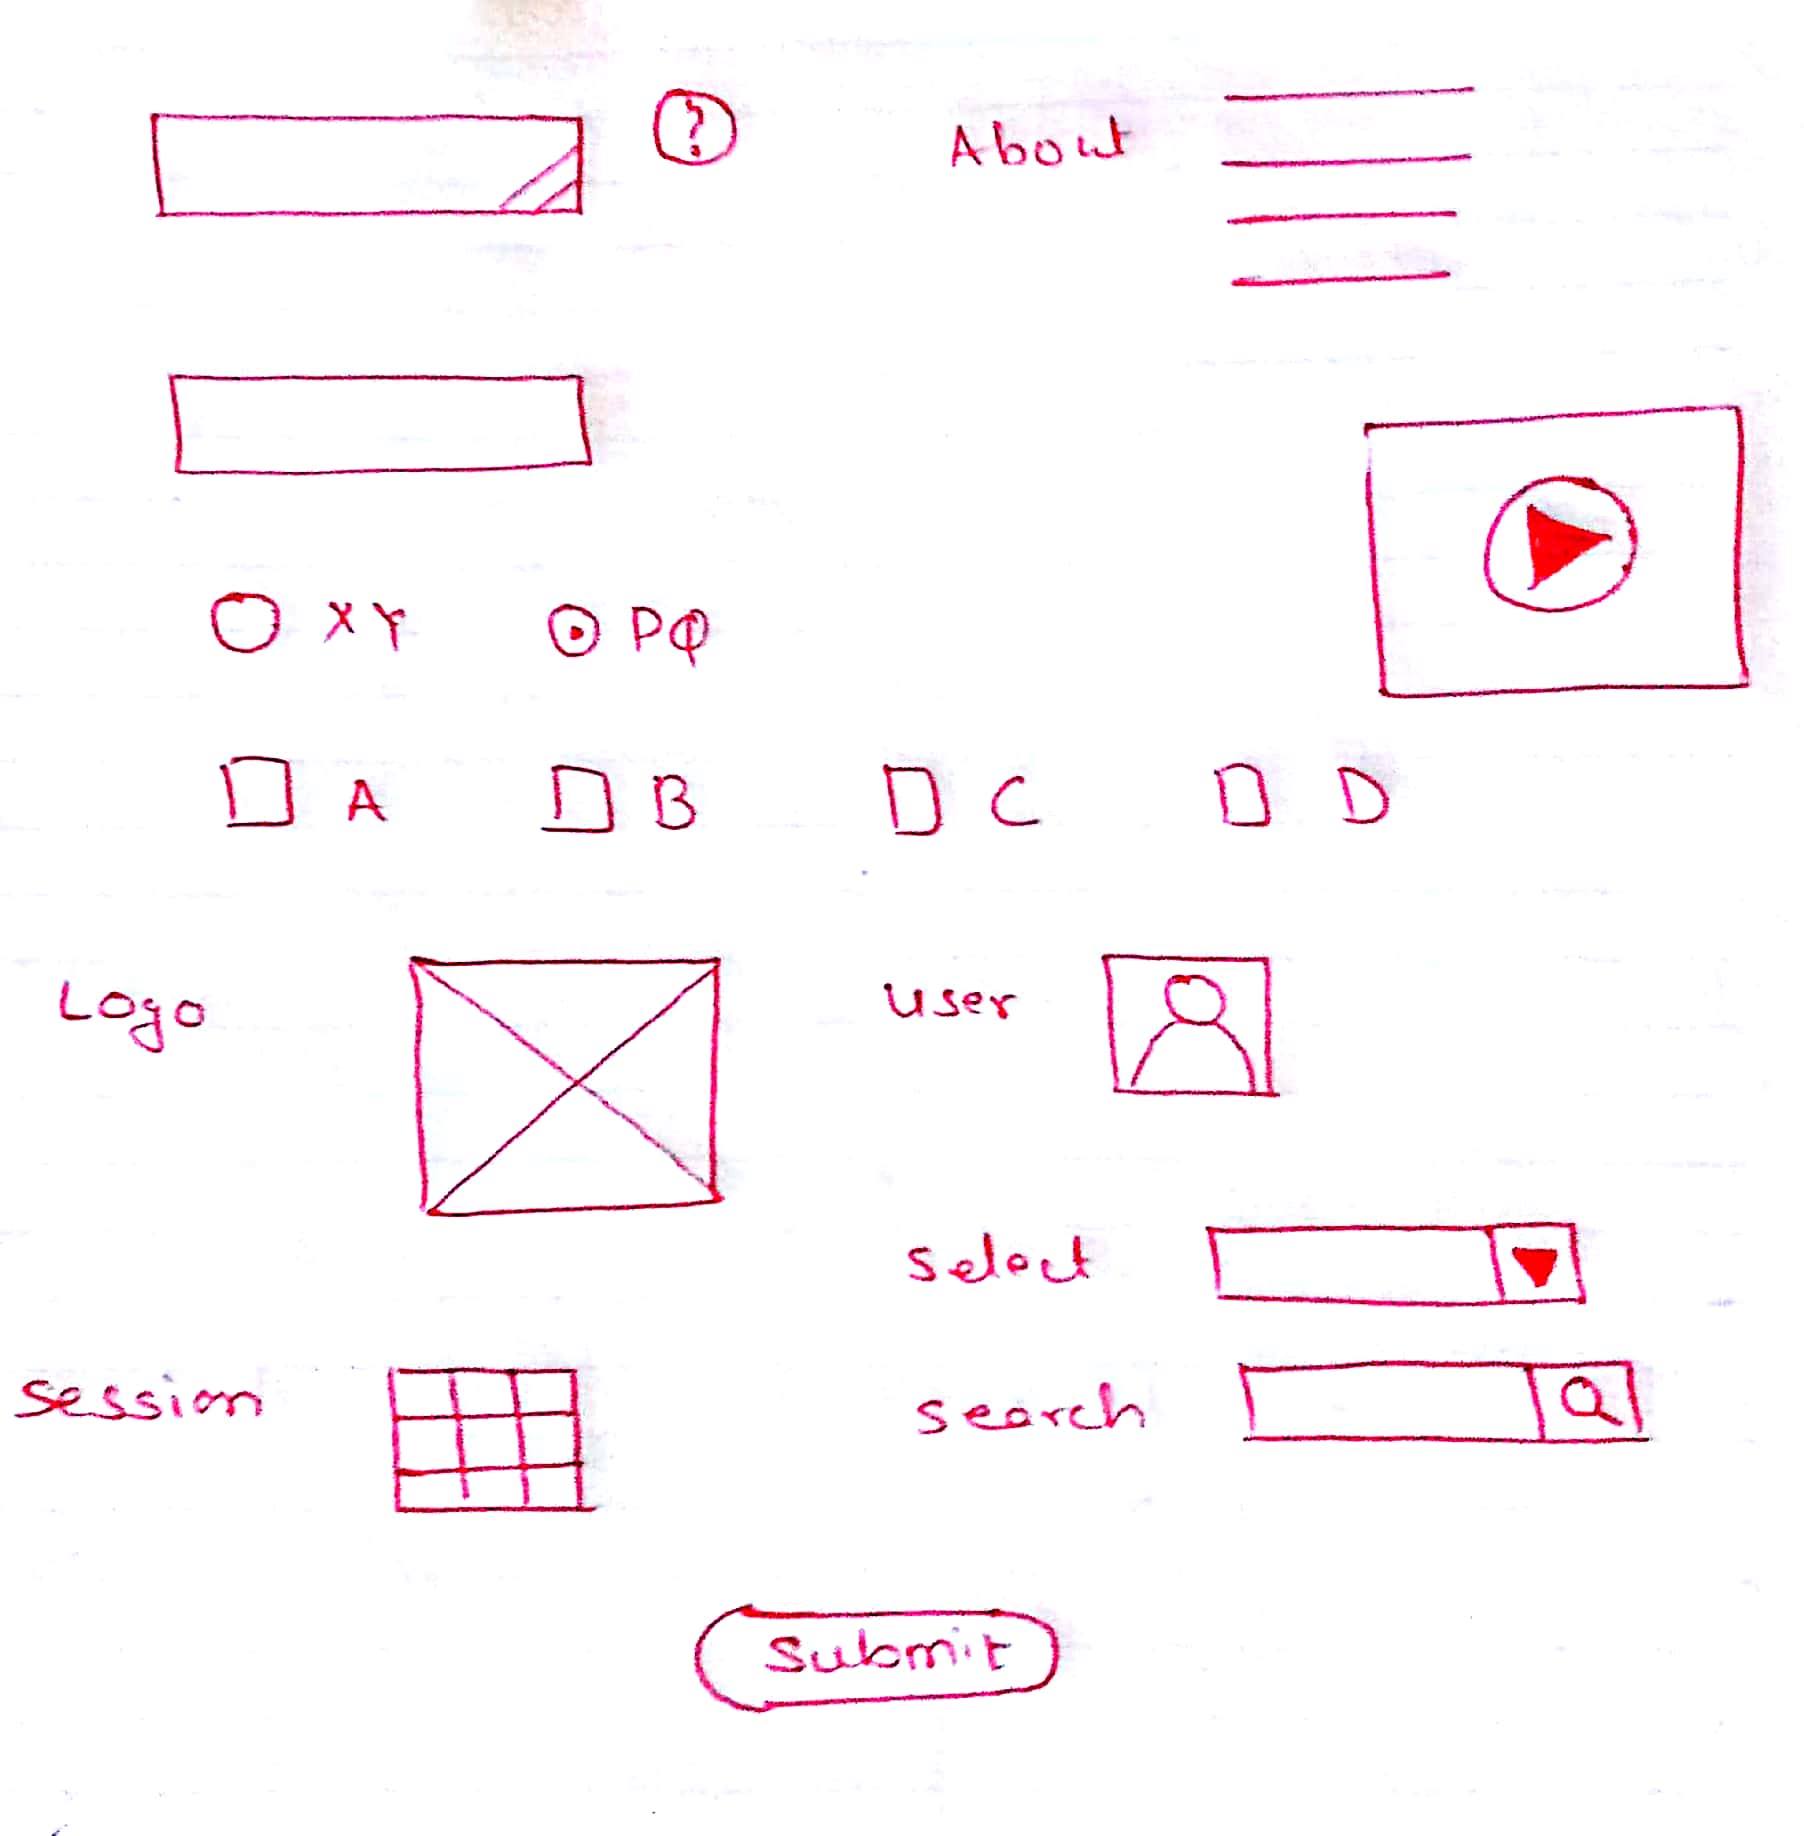 ?
About
XY PQ
A B C D
Logo
user
select
session
search
submit